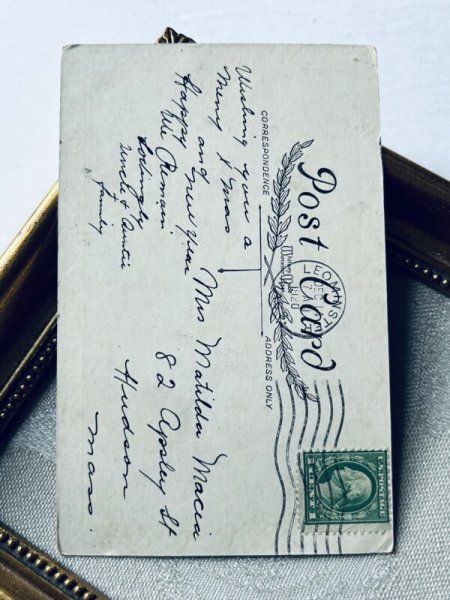 Post Card
CORRESPONDENCE
ADDRESS ONLY
LEOMINST
DEC
1920
MASS
U.S. POSTAGE
CENT
Wishing you a
Merry Xmas
and
Happy New Year
We Remain
Lovingly
Uncle & Auntie
family
Mrs Matilda Macia
82 Apsley St
Hudson
Mass.